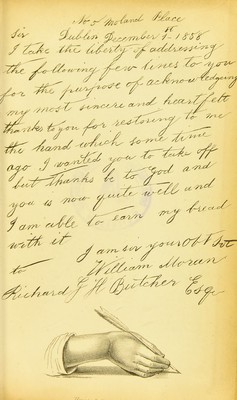 No 5 Moland Place
Sir Dublin December 1st 1858
I take the liberty of addressing
the following few lines to you
for the purpose of acknowledging
my most sincere and heartfelt
thanks to you for restoring to me
the hand which some time
ago I wanted you to take off
but thanks be to God and
you is now quite well and
I am able to earn my bread
with it
I am sir your Obt Svt
to William Moran
Richard G H Butcher Esq